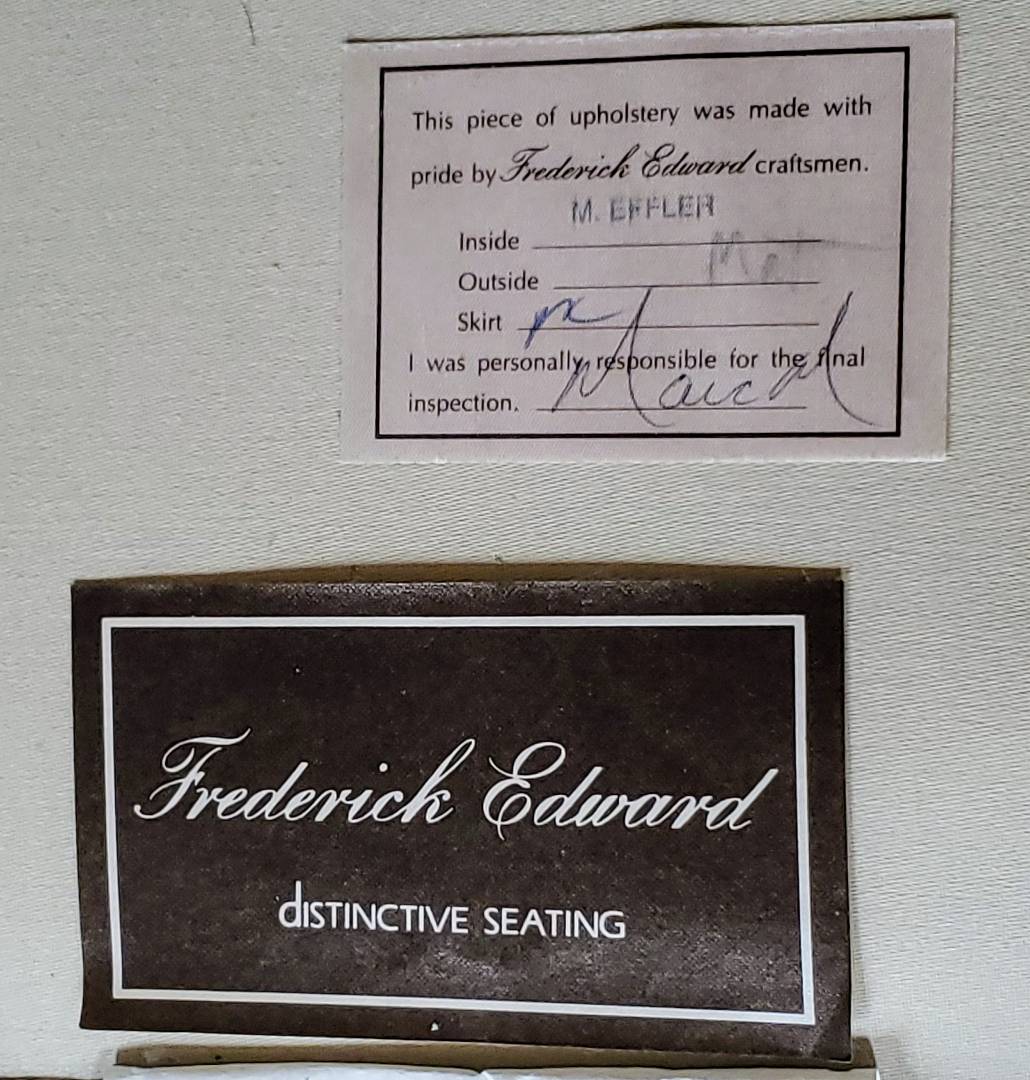 This piece of upholstery was made with
pride by Frederick Edward craftsmen.
M. EFFLER
Inside
Outside
Skirt
I was personally responsible for the final
inspection.
Frederick Edward
dISTINCTIVE SEATING